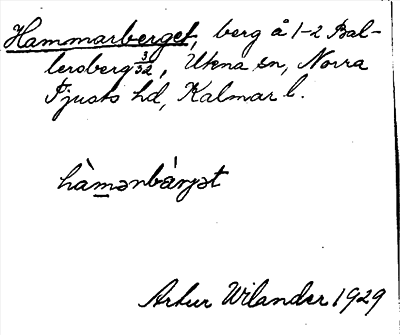 Hammarberget, berg å 1-2 Bal-
lersberg 3/32, Ukna sn, Norra
Tjusts hd, Kalmar l.
hàmənbárjət
Artur Wilander 1929